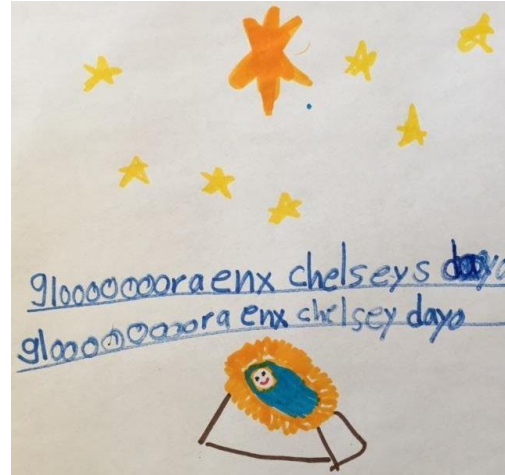 glooooooora enx chelseys dayo
glooooooora enx chelsey dayo